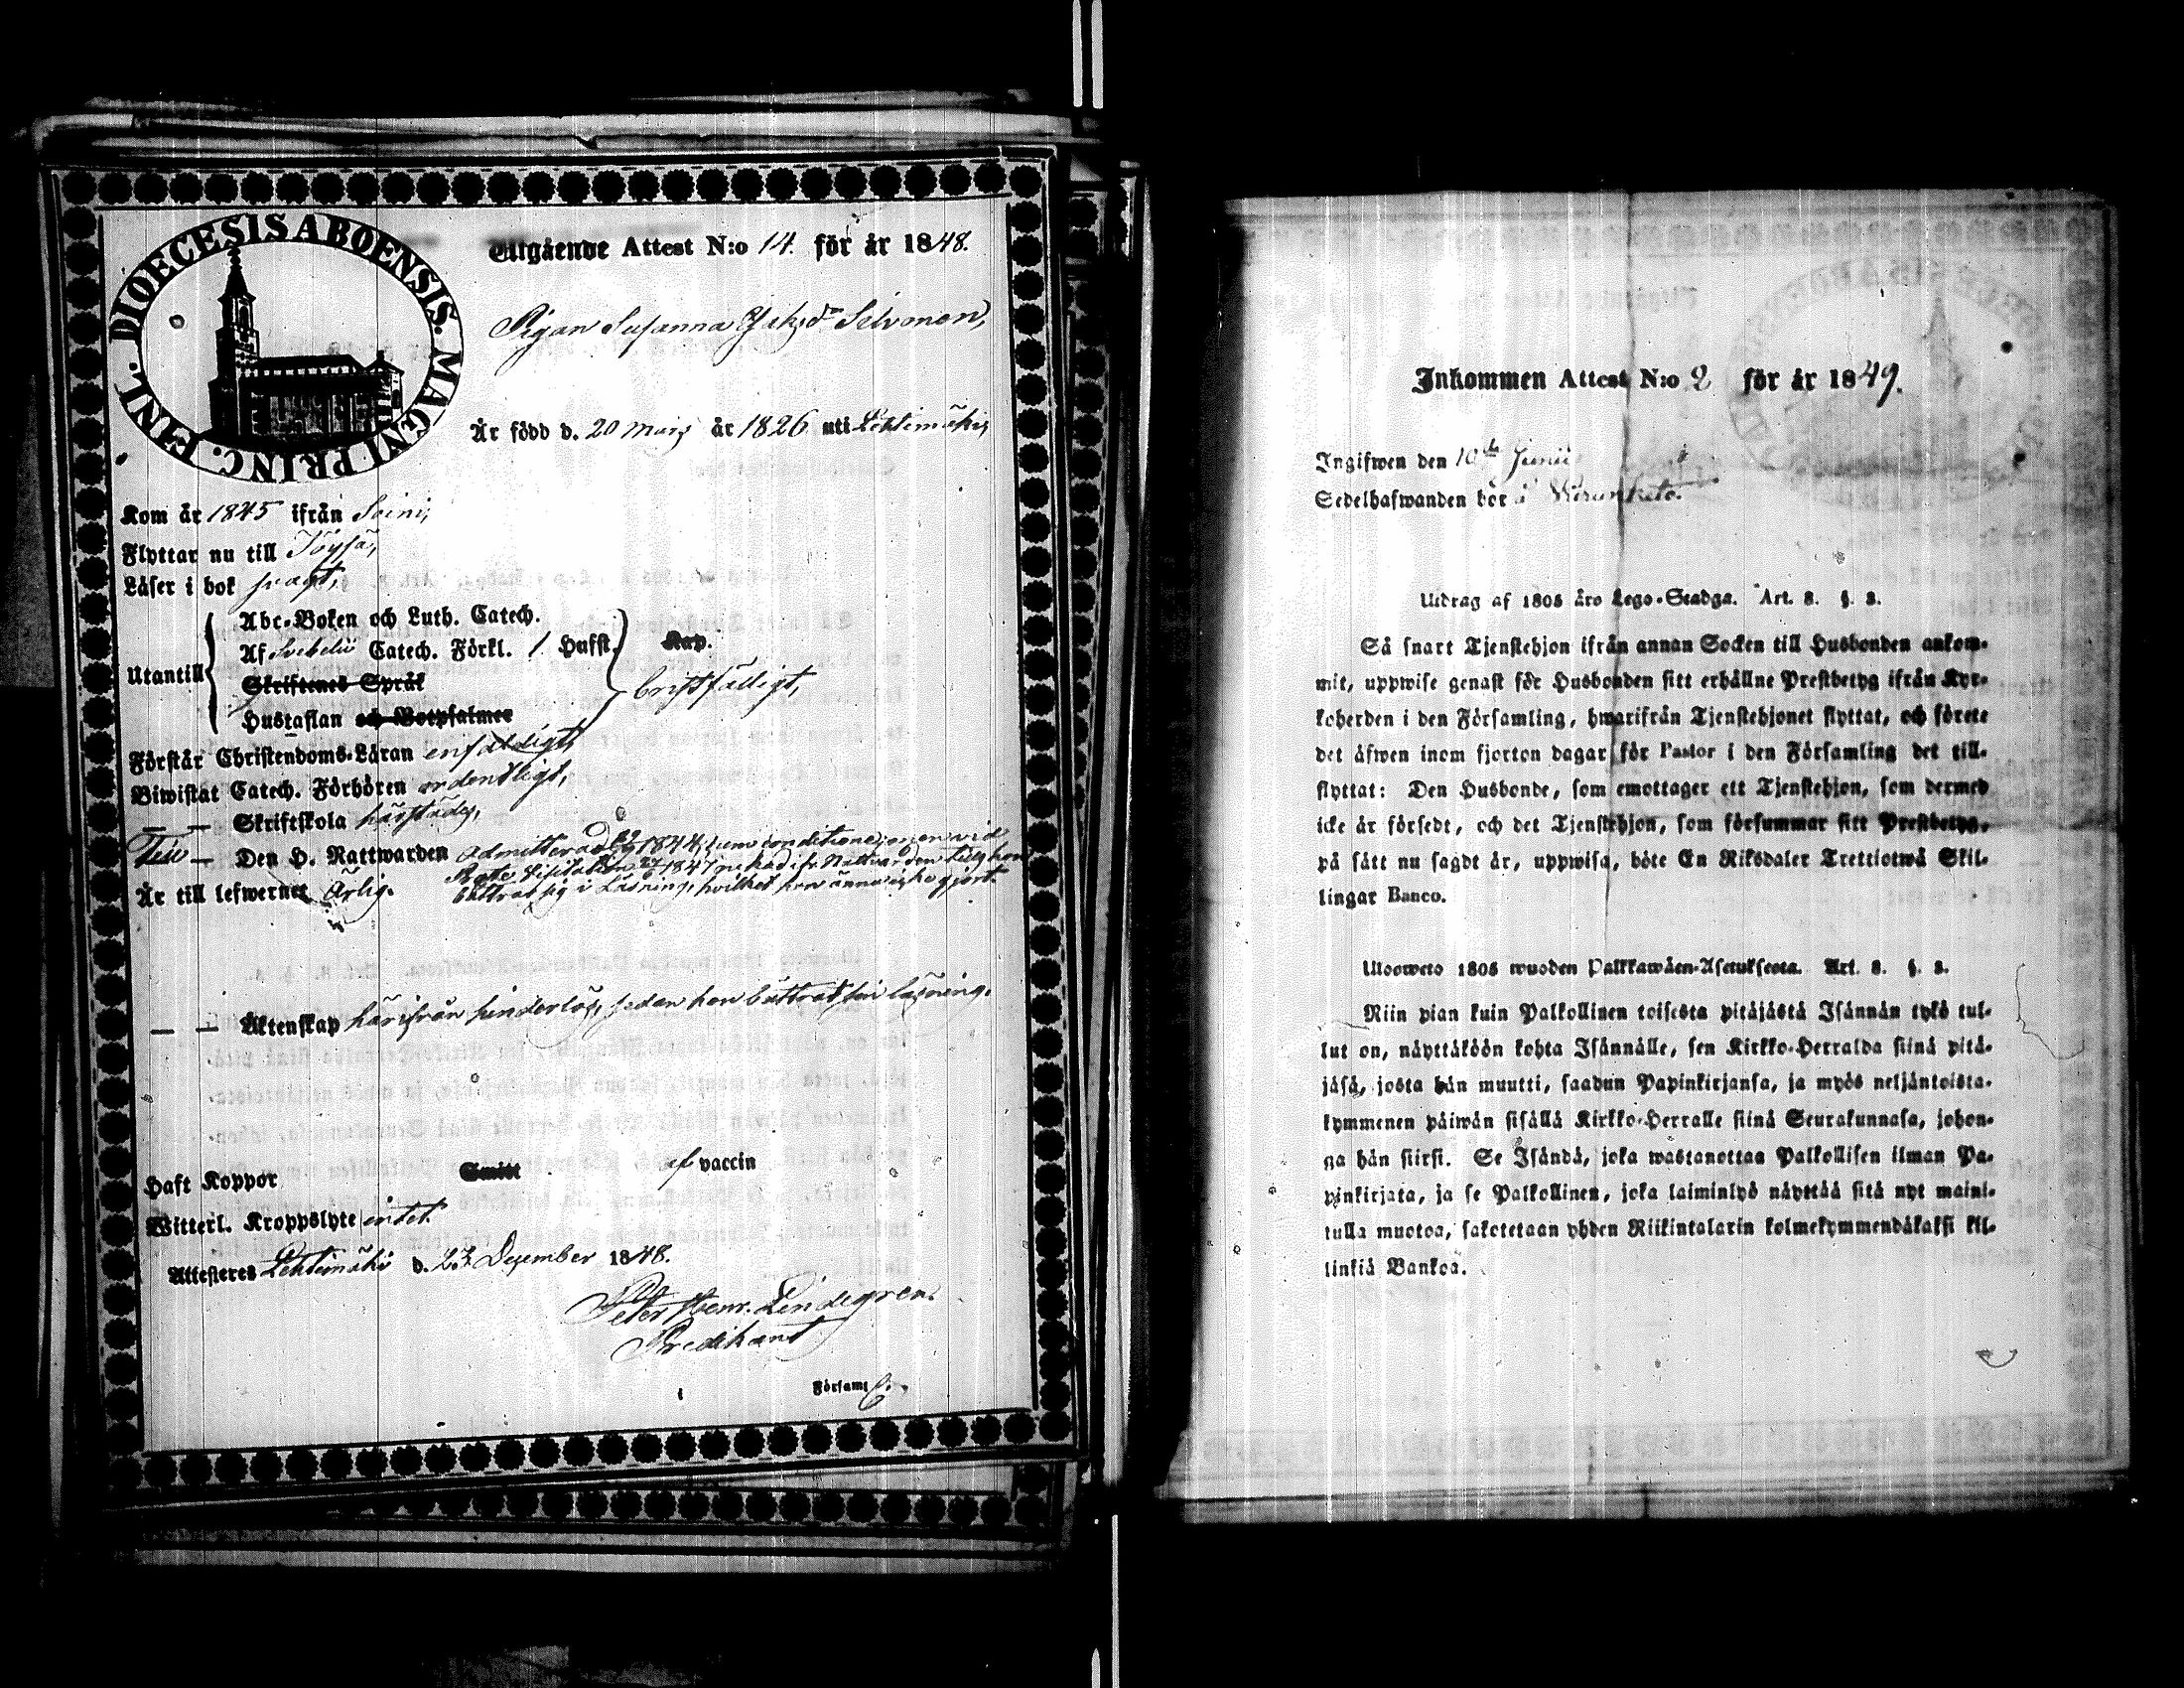 DIOECESIS ABOENSIS. MAGNI PRINC. FINL.
Utgående Attest N:o 14. för år 1848.
Pigan Susanna Jak:dr Silvonen,
Är född d. 20 Marz år 1826 uti Lehtimäki,
Kom år 1845 ifrån Soini,
Flyttar nu till Töysä,
Läser i bok svagt,
Utantill
Abc-Boken och Luth. Catech.
Af Svebelii Catech. Förkl. 1 Hufst.
Skriftenes Språk
Hustaflan och Botpsalmer
Kap.
bristfälligt,
Förstår Christendoms-Läran enfaldigt,
Biwistat Catech. Förhören ordentligt,
— — Skriftskola härstädes,
Till — Den H. Nattwarden admitterad 1844,
Är till lefwernet ärlig.
bättrat sig i Läsning, hvilket hon ännu icke gjort.
— — Äktenskap härifrån hinderlös, sedan hon bättrat sin läsning.
Haft Koppor Smitt af vaccin
Witterl. Kroppslyte intet.
Attesteres Lehtimäki d. 23 December 1848.
Peter Henr. Lindegren.
Predikant
i Församl.
Inkommen Attest N:o 2 för år 1849.
Ingifwen den 10de Junii
Sedelhafwanden bör å
Utdrag af 1805 års Lego-Stadga. Art. 8. §. 3.
Så snart Tjenstehjon ifrån annan Socken till Husbonden ankom-
mit, uppwise genast för Husbonden sitt erhållne Prestbetyg ifrån Kyr-
koherden i den Församling, hwarifrån Tjenstehjonet flyttat, och förete
det äfwen inom fjorton dagar för Pastor i den Församling det till-
flyttat: Den Husbonde, som emottager ett Tjenstehjon, som dermed
icke är försedt, och det Tjenstehjon, som försummar sitt Prestbetyg,
på sätt nu sagdt är, uppwisa, böte En Riksdaler Trettiotwå Skil-
lingar Banco.
Ulosweto 1805 wuoden Palkkawäen-Asetuksesta. Art. 8. §. 3.
Niin pian kuin Palkollinen toisesta pitäjästä Isännän tykö tul-
lut on, näyttäköön kohta Isännälle, sen Kirkko-Herralda siinä pitä-
jäsä, josta hän muutti, saadun Papinkirjansa, ja myös neljäntoista-
kymmenen päiwän sisällä Kirkko-Herralle siinä Seurakunnasa, johon-
ga hän siirsi. Se Isändä, joka wastanottaa Palkollisen ilman Pa-
pinkirjata, ja se Palkollinen, joka laiminlyö näyttää sitä nyt maini-
tulla muotoa, sakotetaan yhden Riikintalarin kolmekymmendäkaksi kil-
linkiä Bankoa.